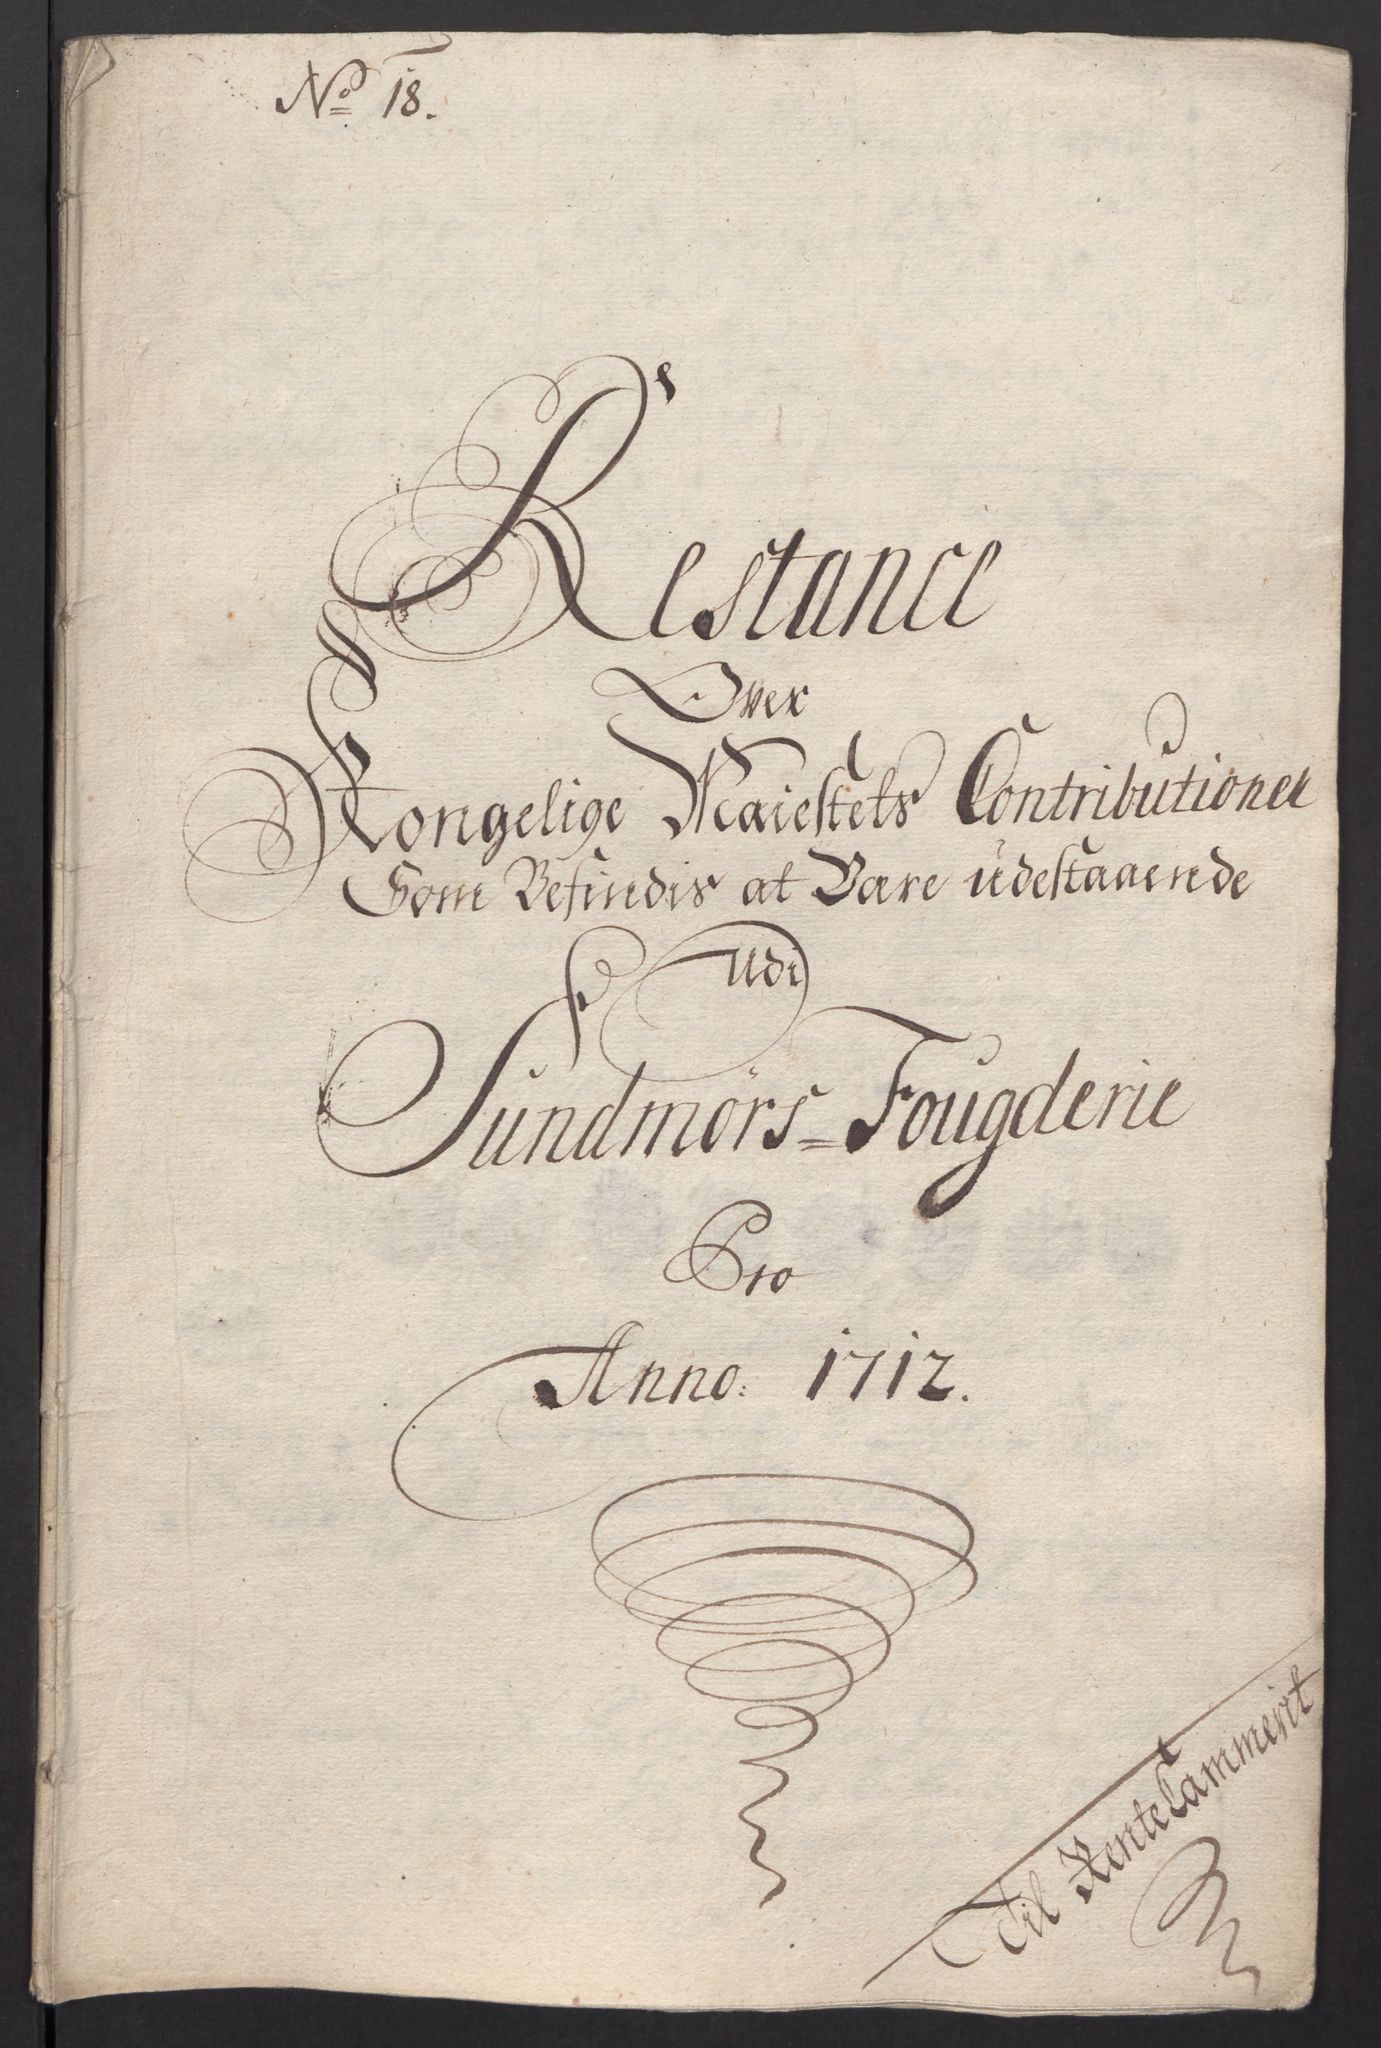 No 18.
Restance
Over
Kongelige Maiestets Contributioner
Som Befindis at Være udestaaende
Udi
Sundmørs=Fougderie
Pro
Anno: 1712.
Til RenteCammerit